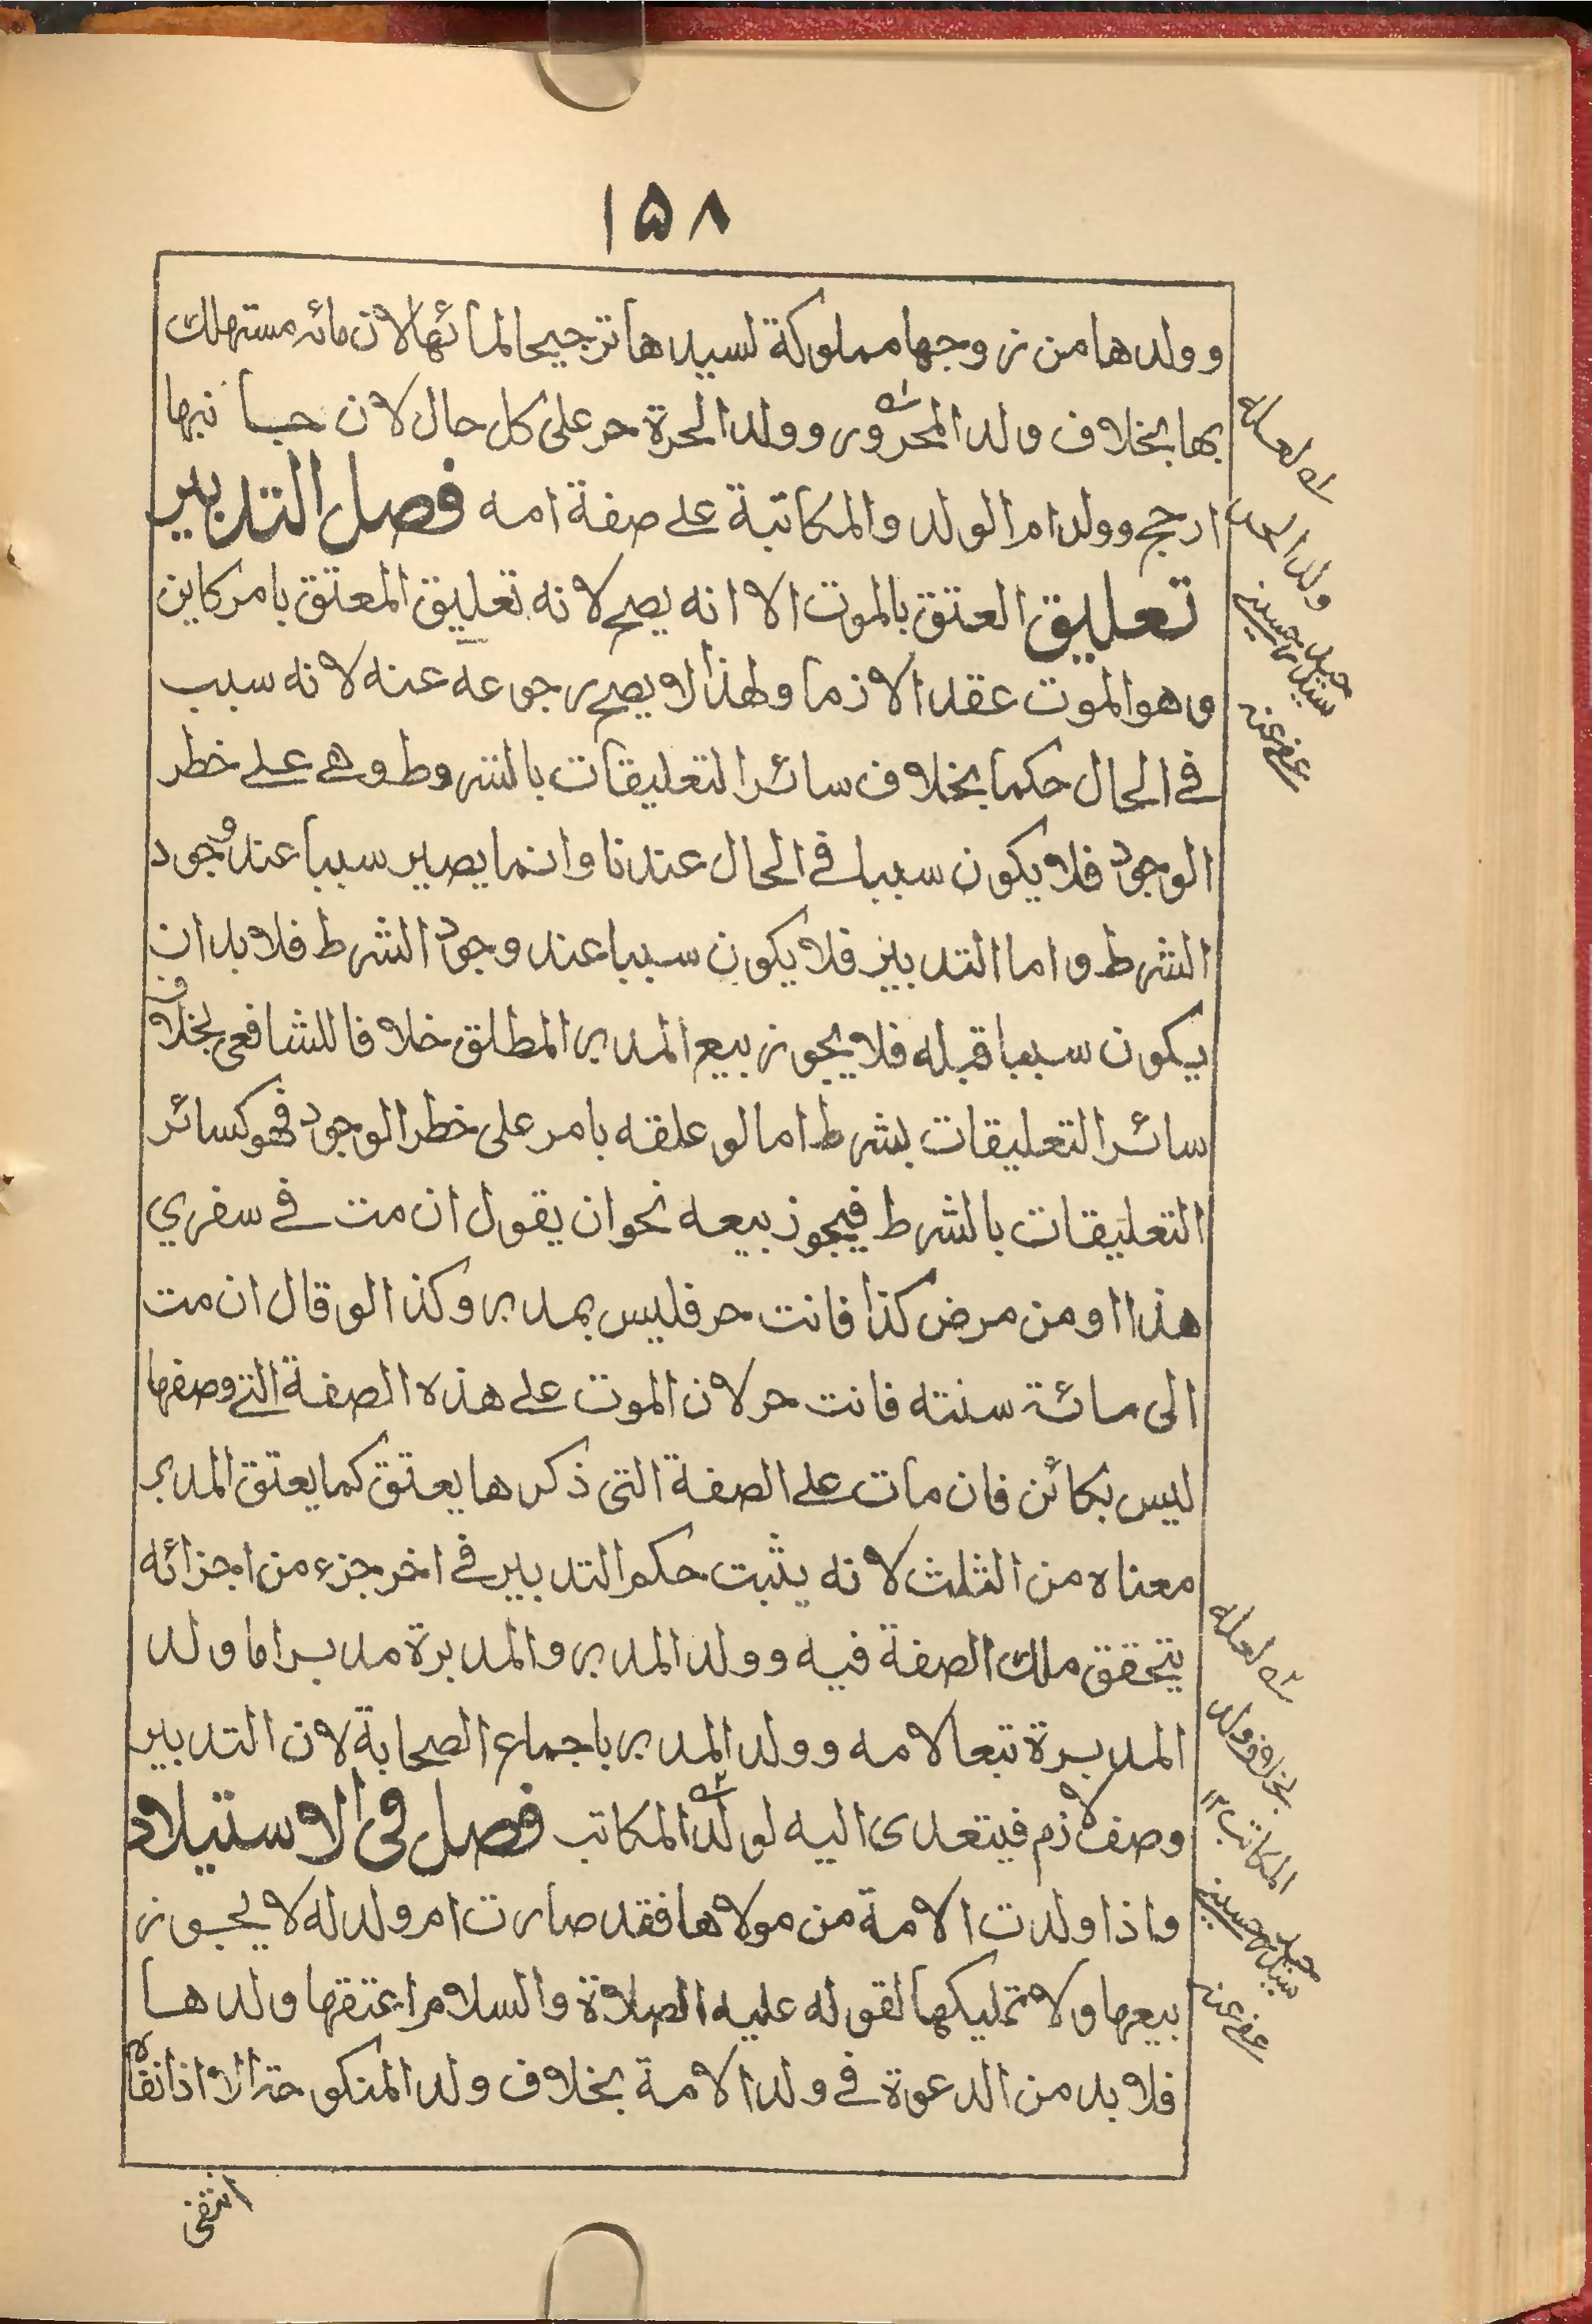 ١٥٨
وولدها من زوجها مملوكة لسيدها ترجيحا لمائها لان مائه مستهلك
بها بخلاف ولد المحرور وولد الحرة حر على كل حال لان جبا نبها
ارجح وولد ام الولد والمكاتبة على صفة امه فصل التدبير
تعليق العتق بالموت الا انه يصح لانه تعليق المعتق بامر كاين
وهو الموت عقدا لازما ولهذا لا يصح رجوعه عنه لانه سبب
في الحال حكما بخلاف سائر التعليقات بالشروط وهي على خطر
الوجود فلا يكون سببا في الحال عندنا وانما يصير سببا عند وجود
الشرط واما التدبير فلا يكون سببا عند وجود الشرط فلا بد ان
يكون سببا قبله فلا يجوز بيع المدبر المطلق خلافا للشافعى بخلاف
سائر التعليقات بشرط اما لو علقه بامر على خطر الوجود فهو كسائر
التعليقات بالشرط فيجوز بيعه نحو ان يقول ان مت في سفري
هذا او من مرض كذا فانت حر فليس بمدبر وكذا لو قال ان مت
الى مائة سنته فانت حر لان الموت على هذه الصفة التي وصفها
ليس بكائن فان مات على الصفة التى ذكرها يعتق كما يعتق المدبر
معناه من الثلث لانه يثبت حكم التدبير في اخر جزء من اجزائه
يتحقق ملك الصفة فيه وولد المدبر والمدبرة مدبر اما ولد
المدبرة تبعا لامه وولد المدبر باجماع الصحابة لان التدبير
وصف لازم فيتعدى اليه لو لد المكاتب فصل فى الاستيلاد
واذا ولدت الامة من مولاها فقد صارت ام ولد له لا يجوز
بيعها ولا تمليكها لقوله عليه الصلاة والسلام اعتقها ولدها
فلا بد من الدعوة في ولد الامة بخلاف ولد المنكوحة الا اذا نفاه
انتفى
له لعله
ولد
حسين
عفى عنه
له لعله
بخلاف ولد
المكاتب ١٢
حسين
عفى عنه